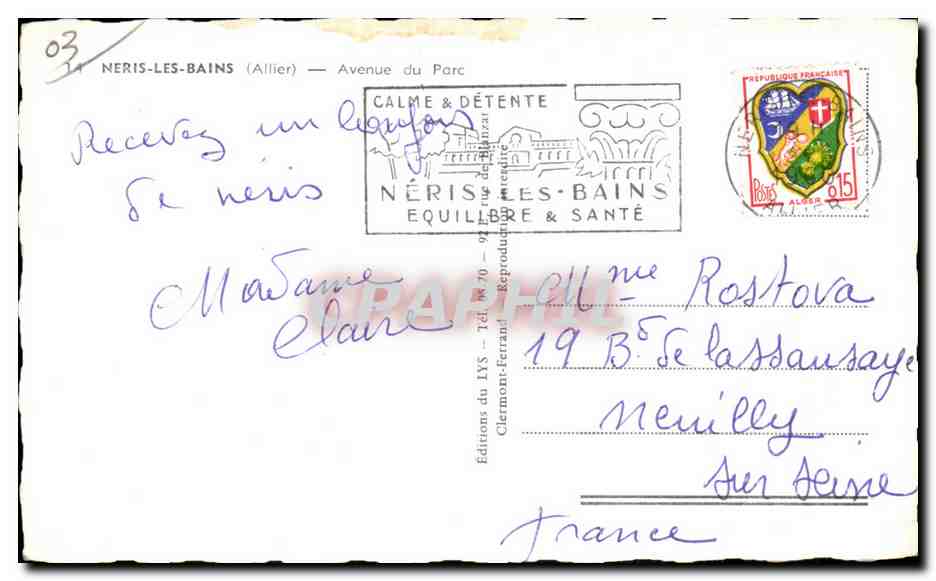 03
14 NERIS-LES-BAINS (Allier) — Avenue du Parc
Recevez un bonjour
de neris
Madame
Claire
CALME & DÉTENTE
NÉRIS-LES-BAINS
EQUILIBRE & SANTÉ
RÉPUBLIQUE FRANÇAISE
POSTES
ALGER
0,15
ALLIER
Éditions du LYS — Tél. 98-70 — 92 rue de Blanzat
Clermont-Ferrand Reproduction interdite
CPAPHIL
Mme Rostova
19 Bd de lassaussaye
Neuilly
sur seine
France